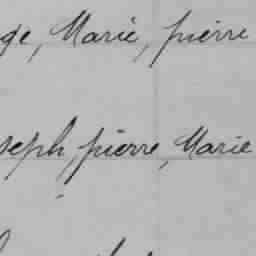 ge, Marie, pierre
seph, pierre, Marie